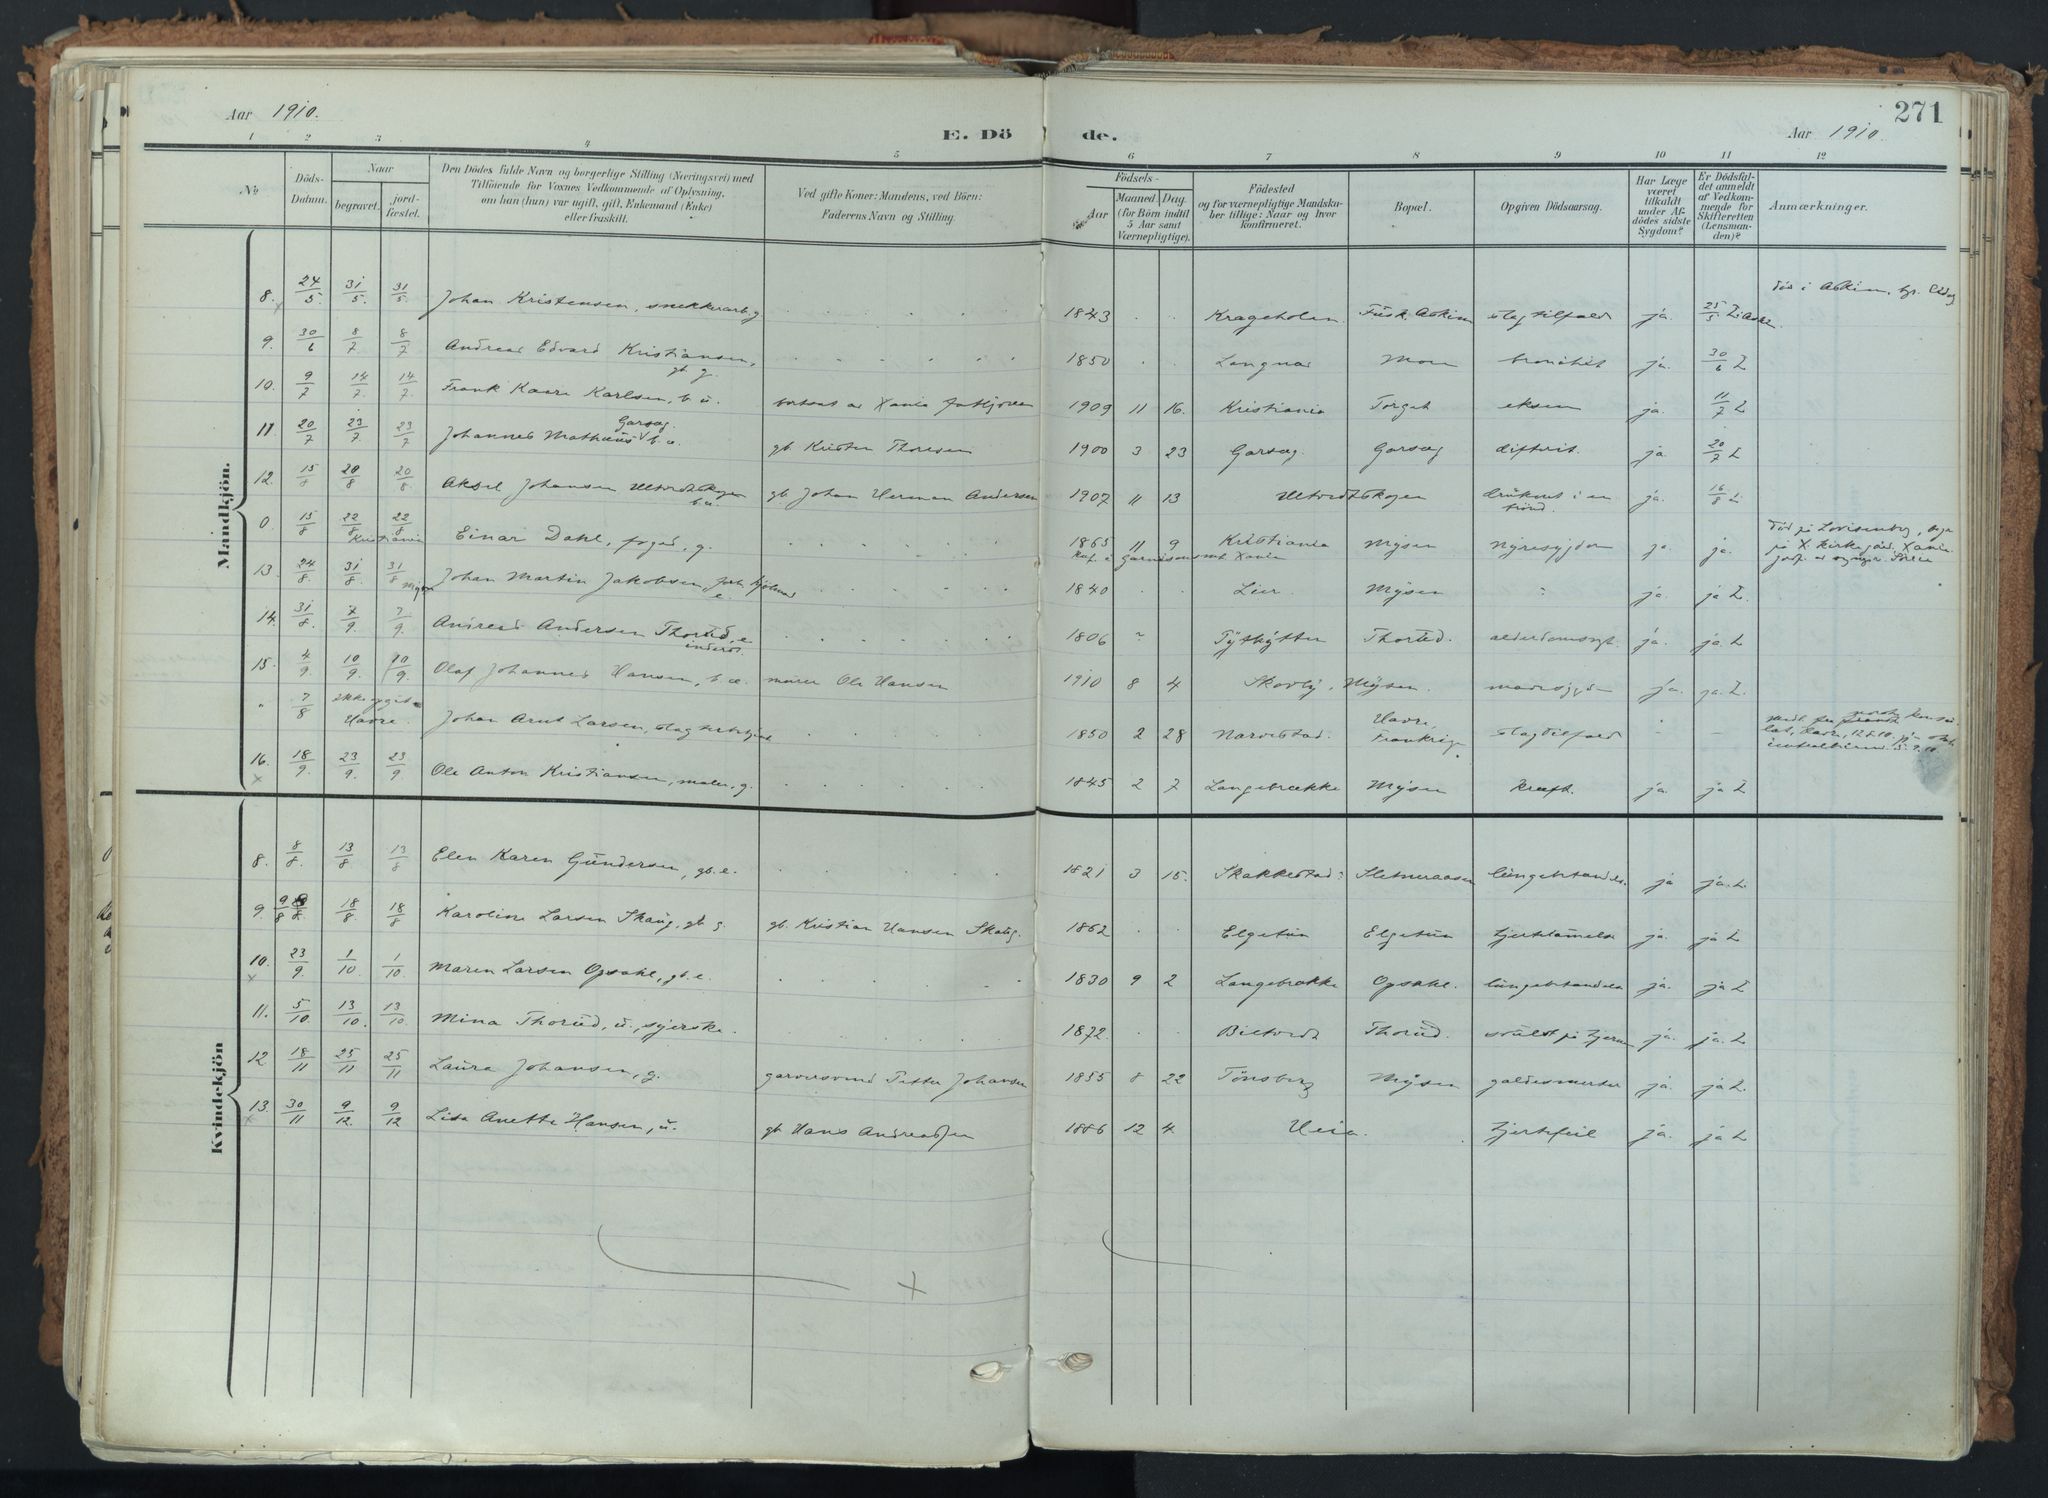 271
Aar 1910.
E. Dö de.
Aar 1910.
1 2 3 4 5 6 7 8 9 10 11 12
No
Döds-Datum.
Naar
begravet.
jord-fæstet.
Den Dödes fulde Navn og borgerlige Stilling (Næringsvei) med
Tilföiende for Voxnes Vedkommende af Oplysning,
om han (hun) var ugift, gift, Enkemand (Enke)
eller fraskilt.
Ved gifte Koner: Mandens, ved Börn:
Faderens Navn og Stilling.
Födsels-
Aar
Maaned. Dag.
(for Börn indtil
5 Aar samt
Værnepligtige).
Födested
og for værnepligtige Mandska-
ber tillige: Naar og hvor
konfirmeret.
Bopæl.
Opgiven Dödsaarsag.
Har Læge
været
tilkaldt
under Af-
dödes sidste
Sygdom?
Er Dödsfal-
det anmeldt
af Vedkom-
mende for
Skifteretten
(Lensman-
den)?
Anmærkninger.
Mandkjön.
8. 24/5. 31/5. 31/5. Johan Kristensen, snekkerarb. g. 1843 Krageholen. Askim slagtilfælde ja. 25/5 L. død i Askim
9. 30/6 8/7 8/7 Andreas Edvard Kristiansen, gb. g. 1850 Langnæs Mon bronchit ja. 30/6 L
10. 9/7 14/7. 14/7. Frank Kaare Karlsen, b. u. bortsat av Xania 1909 11 16. Kristiania Torget eksem ja. 11/7 L
11 20/7 23/7 23/7 Johannes Mathæus Garseg. b. u. gb. Kristen Thoresen 1900 3 23 Garseg. Garseg difterit. ja 20/7 L
12. 15/8 20/8 20/8. Aksel Johansen Ultvedtskogen b. u. gb. Johan Herman Andersen 1907 11 13 Ultvedtskogen druknet i en brønd. ja. 16/8 L.
0. 15/8 22/8 22/8 Kristiania Einar Dahl, foged, g. 1865 11 9 Kristiania Mysen nyresygdom ja ja. død på Lovisenberg
13. 24/8. 31/8. 31/8 Mysen Johan Martin Jakobsen, e. 1840 Lier. Mysen ja. ja L.
14. 31/8. 7/9. 7/9. Andreas Andersen Thorud, e. inderst. 1806 Thorud. alderdomssvgt. ja. ja L
15. 4/9. 10/9. 10/9. Olaf Johannes Hansen, b. u. murer Ole Hansen 1910 8 4 Skovly, Mysen. ja. ja. L.
" 7/8 ikke opgit Havre. Johan Arnt Larsen, 1850 2 28 Narvestad. Havre, Frankrig. slagtilfælde - -
16. 18/9. 23/9. 23/9. Ole Anton Kristiansen, maler, g. 1845 2 7 Langebrække Mysen kræft. ja. ja L
Kvindekjön
8. 8/8. 13/8 13/8 Elen Karen Gundersen, gb. e. 1821 3 15. Skakkestad Sletneraasen lungebetændelse. ja ja. L.
9. 9/8 18/8 18/8 Karoline Larsen Skaug, gb. g. gb. Kristian Hansen Skaug. 1862 Elgetun Elgetun hjertelamelse ja. ja L
10. 23/9. 1/10 1/10. Maren Larsen Opsahl, gb. e. 1830 9 2 Langebrække Opsahl. lungebetændelse ja. ja L
11. 5/10. 13/10. 13/10. Mina Thorud, u., syerske. 1872. Biltvedt Thorud. svulst på hjernen ja. ja. L
12 18/11 25/11 25/11 Laura Johansen, g. garversvend Petter Johansen 1855 8 22 Tønsberg Mysen galdesmerter ja. ja L.
13. 30/11 9/12. 9/12 Lisa Anette Hansen, u. gb Hans Andreassen 1886 12 4 Heia. hjertefeil ja. ja L